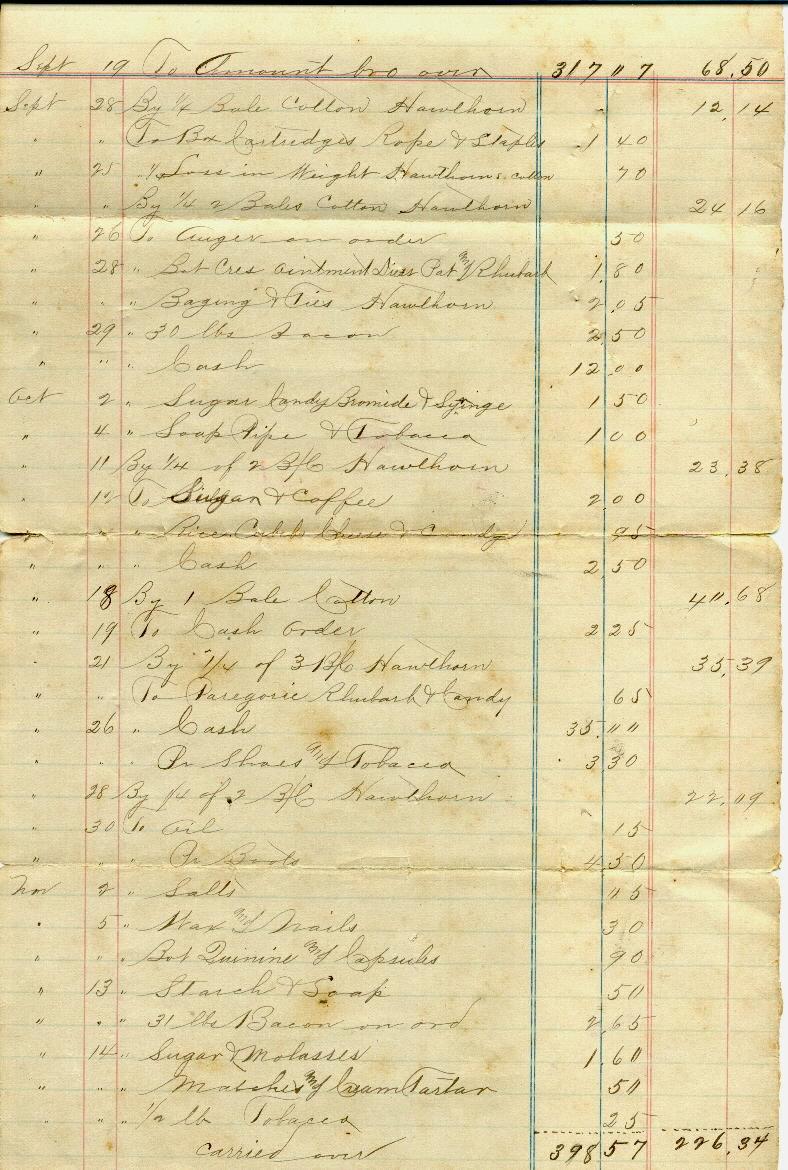 Sept 19 To Amount bro over 317 07 68.50
Sept 28 By 1/4 Bale Cotton Hawthorn 12.14
" " To Bx Cartredges Rope & Staples 1 40
" 25 " 1/4 Loss in Weight Hawthorns cotton 70
" " By 1/4 2 Bales Cotton Hawthorn 24 16
" 26 To Auger on order 50
" 28 " Bot Cres Ointment Pat and Rhubarb 1.80
" " " Baging & Ties Hawthorn 2.05
" 29 " 30 lbs Bacon 2.50
" " " Cash 12 00
Oct 2 " Sugar Candy Bromide & Syinge 1 50
" 4 " Soap Pipe & Tobacco 1 00
" 11 By 1/4 of 2 B/C Hawthorn 23.38
" 12 To Sugar & Coffee 2 00
" " " Rice Cheese & Candy 95
" " " Cash 2.50
" 18 By 1 Bale Cotton 40.68
" 19 To Cash order 2 25
" 21 By 1/4 of 3 B/C Hawthorn 35.39
" " To Paregoric Rhubarb & Candy 65
" 26 " Cash 35.00
" " " Pr Shoes and Tobacco 3 30
" 28 By 1/4 of 2 B/C Hawthorn 22.09
" 30 To Oil 15
" " " Pr Boots 4.50
Nov 2 " Salts 05
" 5 " Wax and Nails 30
" " " Bot Quinine and Capsules 90
" 13 " Starch & Soap 50
" " " 31 lbs Bacon on ord 2.65
" 14 " Sugar & Molasses 1.60
" " " Matches and Cream Tartar 50
" " " 1/2 lb Tobacco 25
Carried over 398 57 226.34